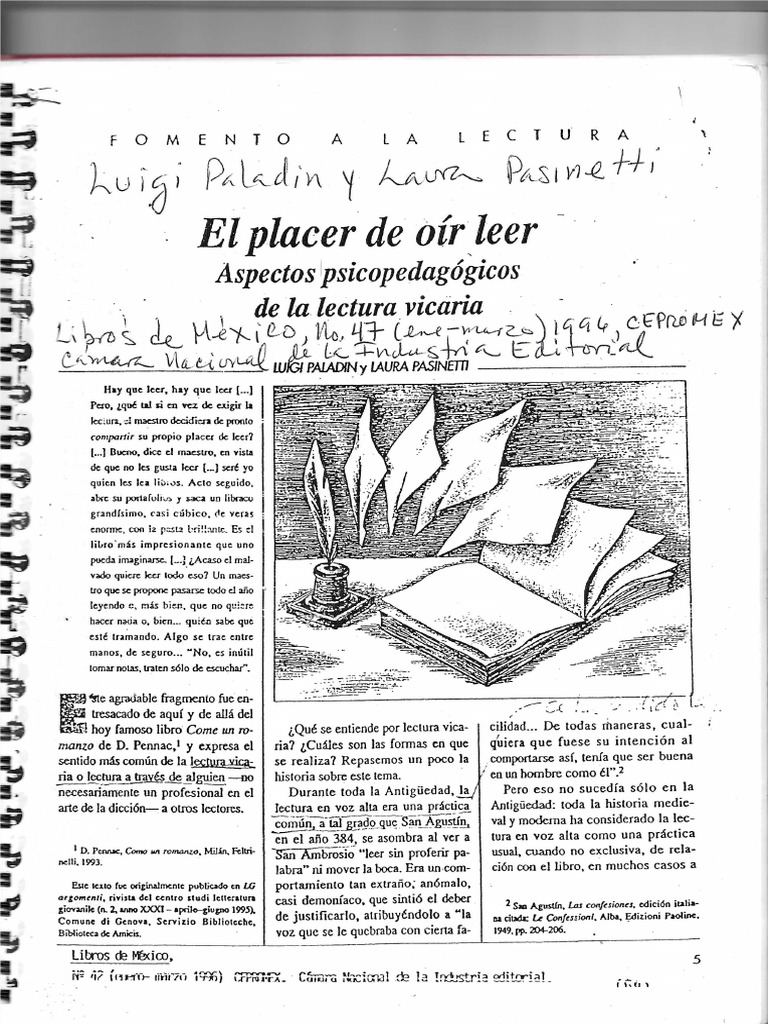 FOMENTO A LA LECTURA
Luigi Paladin y Laura Pasinetti
El placer de oír leer
Aspectos psicopedagógicos
de la lectura vicaria
Libros de México, No. 47 (ene-marzo) 1996, CEPROMEX
Cámara Nacional de la Industria Editorial
LUIGI PALADIN y LAURA PASINETTI
Hay que leer, hay que leer [...]
Pero, ¿qué tal si en vez de exigir la
lectura, el maestro decidiera de pronto
compartir su propio placer de leer?
[...] Bueno, dice el maestro, en vista
de que no les gusta leer [...] seré yo
quien les lea libros. Acto seguido,
abre su portafolios y saca un libraco
grandísimo, casi cúbico, de veras
enorme, con la pasta brillante. Es el
libro más impresionante que uno
pueda imaginarse. [...] ¿Acaso el mal-
vado quiere leer todo eso? Un maes-
tro que se propone pasarse todo el año
leyendo e, más bien, que no quiere
hacer nada o, bien... quién sabe que
esté tramando. Algo se trae entre
manos, de seguro... "No, es inútil
tomar notas, traten sólo de escuchar".
Este agradable fragmento fue en-
tresacado de aquí y de allá del
hoy famoso libro Come un ro-
manzo de D. Pennac,1 y expresa el
sentido más común de la lectura vica-
ria o lectura a través de alguien —no
necesariamente un profesional en el
arte de la dicción— a otros lectores.
1 D. Pennac, Como un romanzo, Milán, Feltri-
nelli, 1993.
Este texto fue originalmente publicado en LG
argomenti, rivista del centro studi letteratura
giovanile (n. 2, anno XXXI - aprile-giugno 1995),
Comune di Genova, Servizio Biblioteche,
Biblioteca de Amicis.
¿Qué se entiende por lectura vica-
ria? ¿Cuáles son las formas en que
se realiza? Repasemos un poco la
historia sobre este tema.
Durante toda la Antigüedad, la
lectura en voz alta era una práctica
común, a tal grado que San Agustín,
en el año 384, se asombra al ver a
San Ambrosio "leer sin proferir pa-
labra" ni mover la boca. Era un com-
portamiento tan extraño, anómalo,
casi demoníaco, que sintió el deber
de justificarlo, atribuyéndolo a "la
voz que se le quebraba con cierta fa-
cilidad... De todas maneras, cual-
quiera que fuese su intención al
comportarse así, tenía que ser buena
en un hombre como él".2
Pero eso no sucedía sólo en la
Antigüedad: toda la historia medie-
val y moderna ha considerado la lec-
tura en voz alta como una práctica
usual, cuando no exclusiva, de rela-
ción con el libro, en muchos casos a
2 San Agustín, Las confesiones, edición italia-
na citada: Le Confessioni, Alba, Edizioni Paoline,
1949, pp. 204-206.
Libros de México,
Nº 47 (enero- marzo 1996) CEPROMEX. Cámara Nacional de la Industria editorial.
5